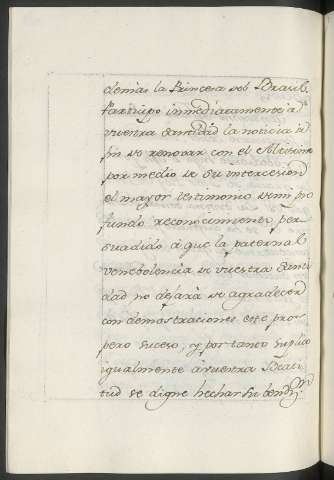 demàs la Princesa del Brasil
Participo immediatamente a
vuestra Santidad la noticia à
fin de renovar con el Altissimo
por medio de su intercesion
el mayor testimonio de mi pro
fundo reconocimiento, per
suadido à que la paternal
venebolencia de vuestra Santi
dad no dejarà de agradecer
con demostraciones este pros
pero suceso, y por tanto suplico
igualmente à vuestra Beati
tud se digne hechar su bend.on